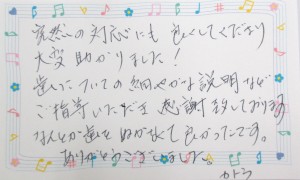 突然の対応にも良くしてくださり
大変助かりました!
歯についての細やかな説明など
ご指導いただき感謝致しております
なんとか歯をぬかなくて良かったです。
ありがとうございました。
カトウ